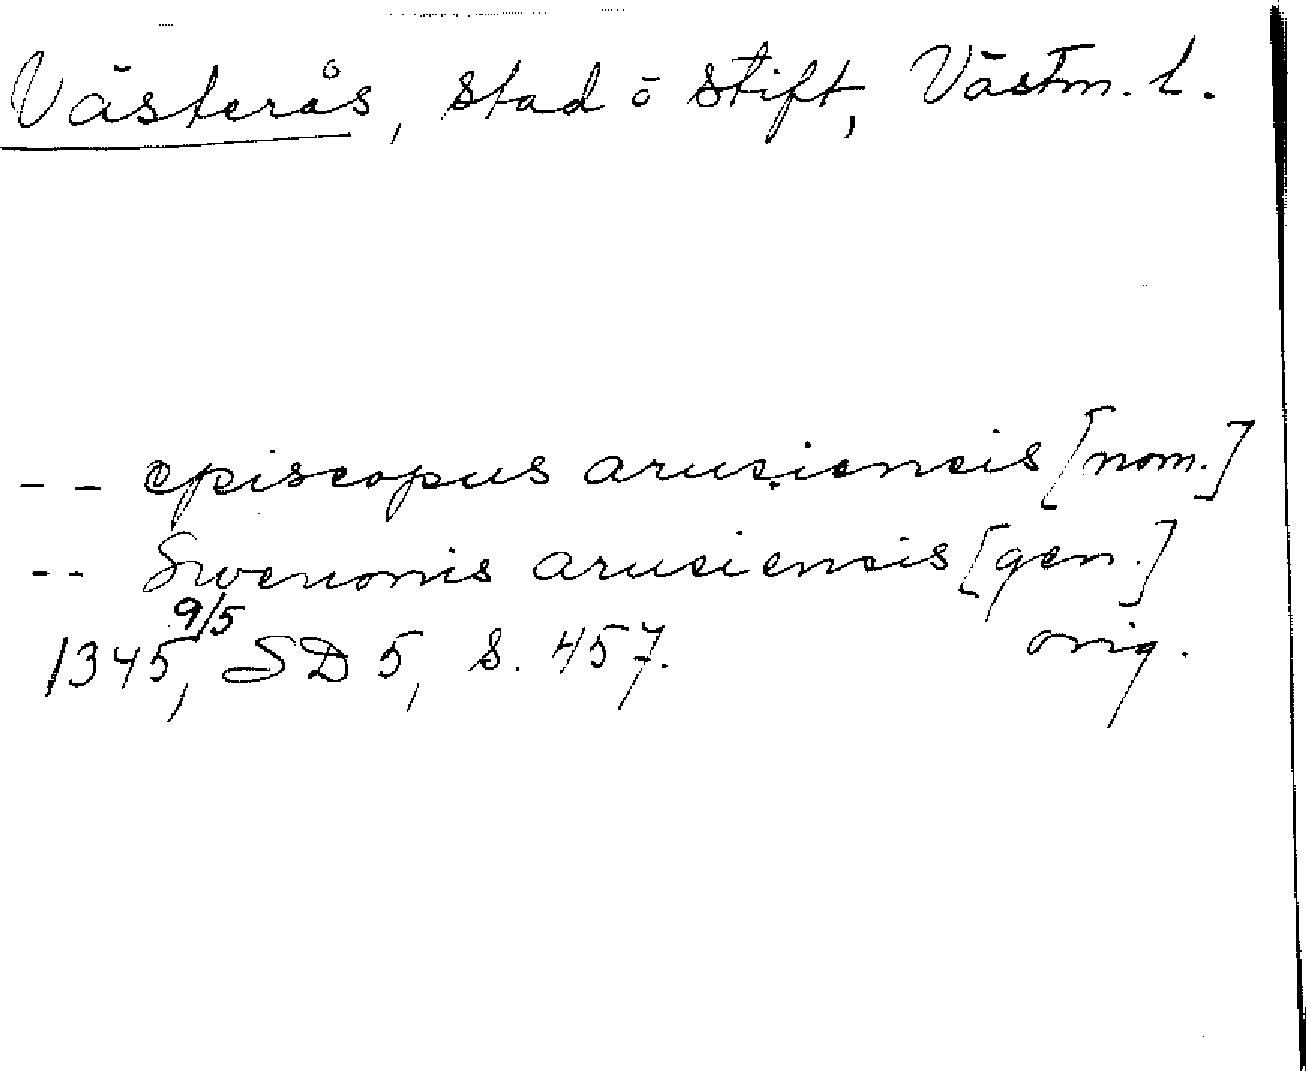 Västerås, stad o stift, Västm. l.
-- episcopus arusiensis [nom.]
-- Swenonis arusiensis [gen.]
1345 9/5, SD 5, s. 457. orig.